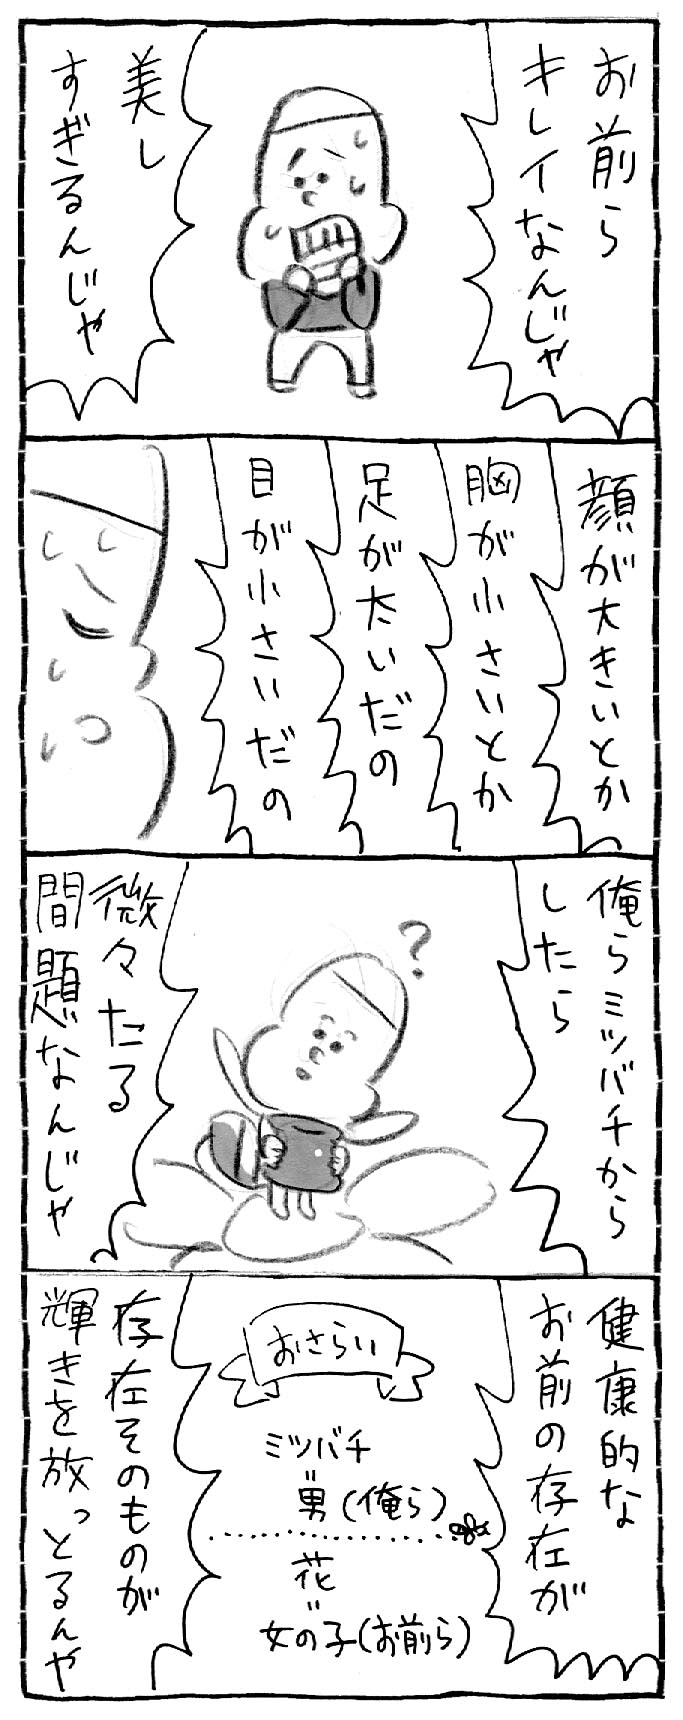 お前ら
キレイなんじゃ
美し
すぎるんじゃ
顔が大きいとか
胸が小さいとか
足が太いだの
目が小さいだの
俺らミツバチから
したら
?
微々たる
問題なんじゃ
健康的な
お前の存在が
おさらい
ミツバチ
=
男(俺ら)
花
=
女の子(お前ら)
存在そのものが
輝きを放っとるんや